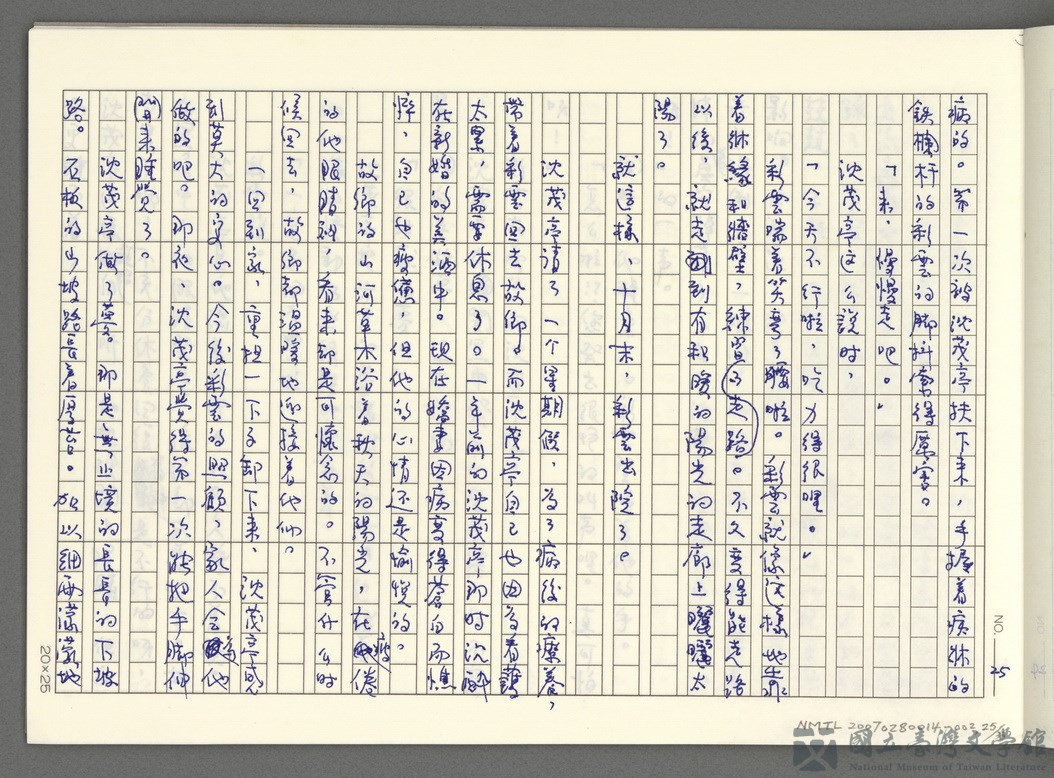 病的。第一次被沈茂亭扶下來，手握着病牀的
鉄欄杆的彩雲的脚抖索得厲害。
「来，慢慢走吧。」
沈茂亭这么說时，
「今天不行啦，吃力得很哩。」
彩雲喘着笑弯了腰啦。彩雲就像这樣地靠
着牀緣和牆壁，練習走路。不久变得能走路
以後，就走到有和暖的陽光的走廊上曬曬太
陽了。
就這樣，十月末，彩雲出院了。
沈茂亭請了一个星期假，為了病後的療養，
帶着彩雲回去故鄉。而沈茂亭自己也因為看護
太累，需要休息了。一年前的沈茂亭，那时沉醉
在新婚的美酒中。現在嬌妻因病变得蒼白而憔
悴，自己也疲憊，但他的心情还是愉悅的。
故鄉的山河草木浴着秋天的陽光，在疲倦
的他眼睛裡看来却是可懷念的。不管什么时
候回去，故鄉都温暖地迎接着他们。
一回到家，重担一下子卸下来，沈茂亭感
到莫大的安心。今後彩雲的照顧，家人会為他
做的吧。那夜沈茂亭覺得第一次能把手脚伸
開来睡覺了。
沈茂亭做了夢。那是無止境的長長的下坡
路。石板的山坡路長着厚苔。加以細雨濛濛地
NO. 25
20×25
NMTL 20070280014-002 25
國立臺灣文學館
National Museum of Taiwan Literature